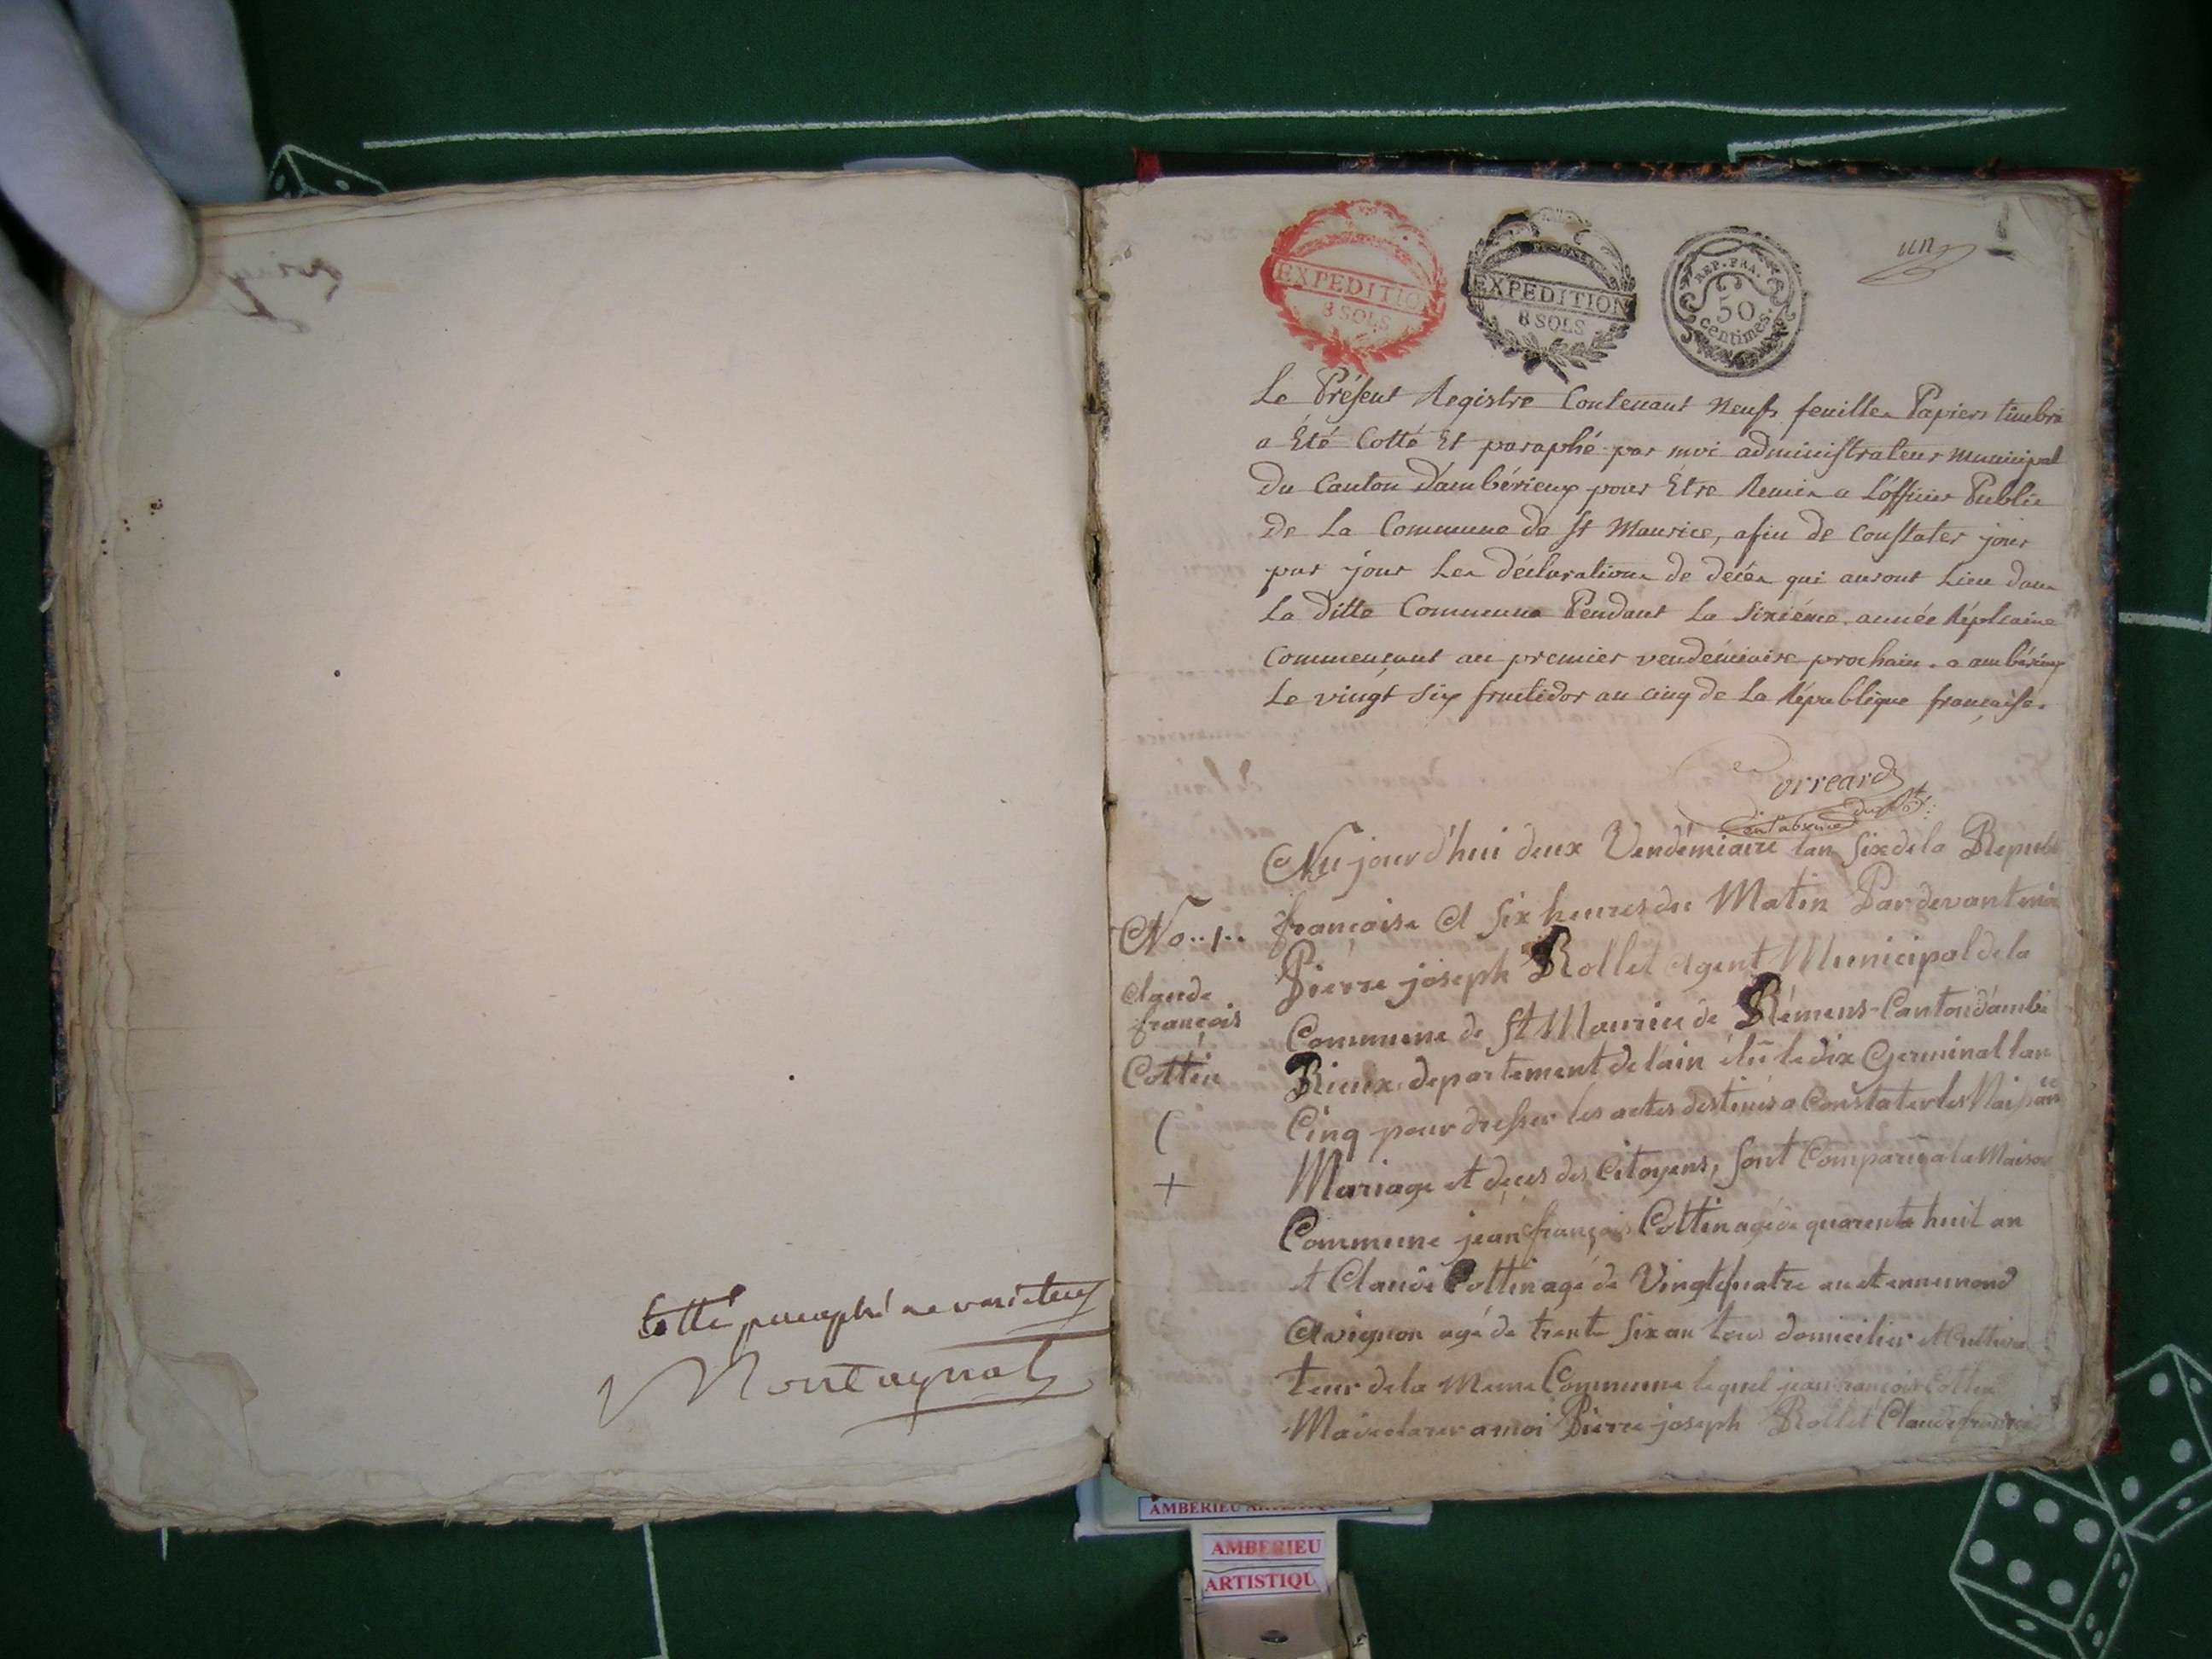 Cotté paraphé ne varietur
Montagnat
EXPEDITION
8 SOLS
EXPEDITION
8 SOLS
REP. FRA.
50
centimes.
un
1
Le Présent Registre Contenant Neufs feuilles Papiers timbré
a Été Cotté Et paraphé par moi administrateur municipal
Du Canton D'ambérieux pour Être Remis a L'officier Public
De La Commune de St Maurice, afin de Constater jour
par jour Les déclarations de décès qui auront Lieu dans
La ditte Commune Pendant La Sixiéme année Répicaine
Commençant au premier vendémiaire prochain. a ambérieux
Le vingt six fructidor an cinq de La République française.
orreard
en l'absence du
Aujourd'hui deux Vendémiaire lan Six de la Republ
No..1.. française A Six heures du Matin Pardevant moi
Pierre joseph Rollet Agent Municipal de la
Claude
françois
Cottin
Commune de St Maurice de Rémens Canton d'ambé
Rieux departement de l'ain élû le dix Germinal lan
Cinq pour dresser les actes destinés a Constater les Naissan
ce
Mariage et deces des Citoyens, sont Comparû a la Maison
+
Commune jean françois Cottin agé de quarente huit an
et Claude Cottin agé de Vingt quatre an et ennemond
Avignon agé de trente Six an tous domicilier et Cultiva
teur de la Meme Commune lequel jean françois Cottin
Ma declarer a moi Pierre joseph Rollet Claude françois
AMBERIEU
AMBERIEU
ARTISTIQU